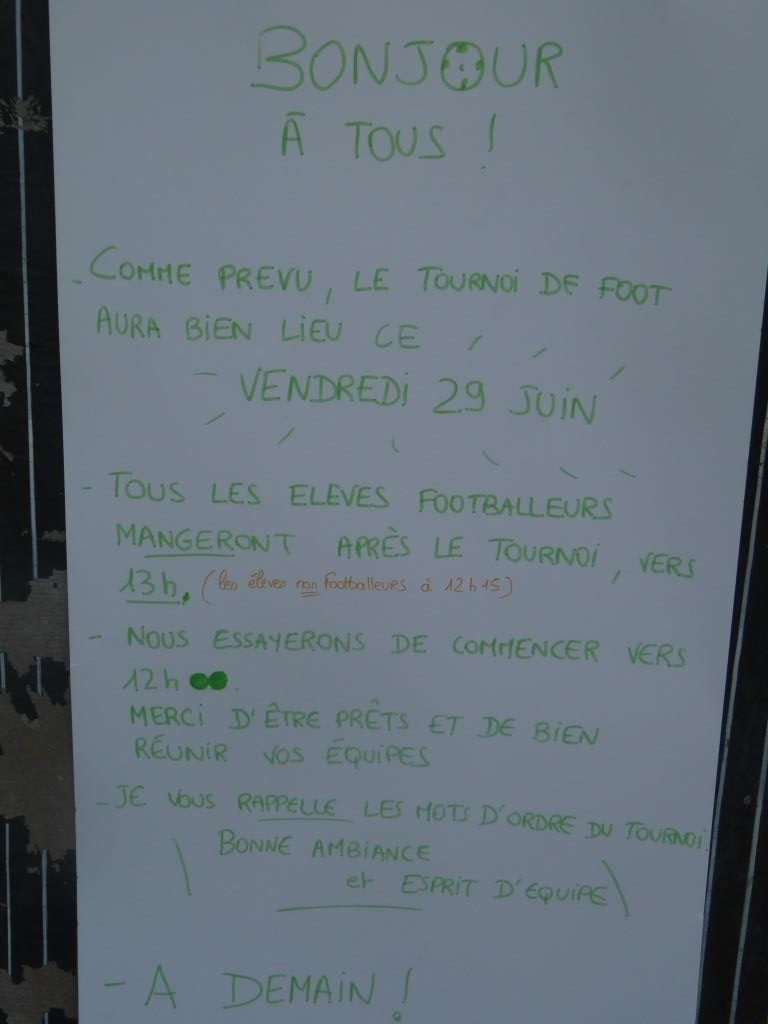 BONJOUR
À TOUS !
- COMME PREVU, LE TOURNOI DE FOOT
AURA BIEN LIEU CE
VENDREDI 29 JUIN
- TOUS LES ELEVES FOOTBALLEURS
MANGERONT APRÈS LE TOURNOI, VERS
13h, (les élèves non Footballeurs à 12h15)
- NOUS ESSAYERONS DE COMMENCER VERS
12h
MERCI D'ÊTRE PRÊTS ET DE BIEN
RÉUNIR VOS ÉQUIPES
- JE VOUS RAPPELLE LES MOTS D'ORDRE DU TOURNOI.
BONNE AMBIANCE
et ESPRIT D'EQUIPE
- A DEMAIN !